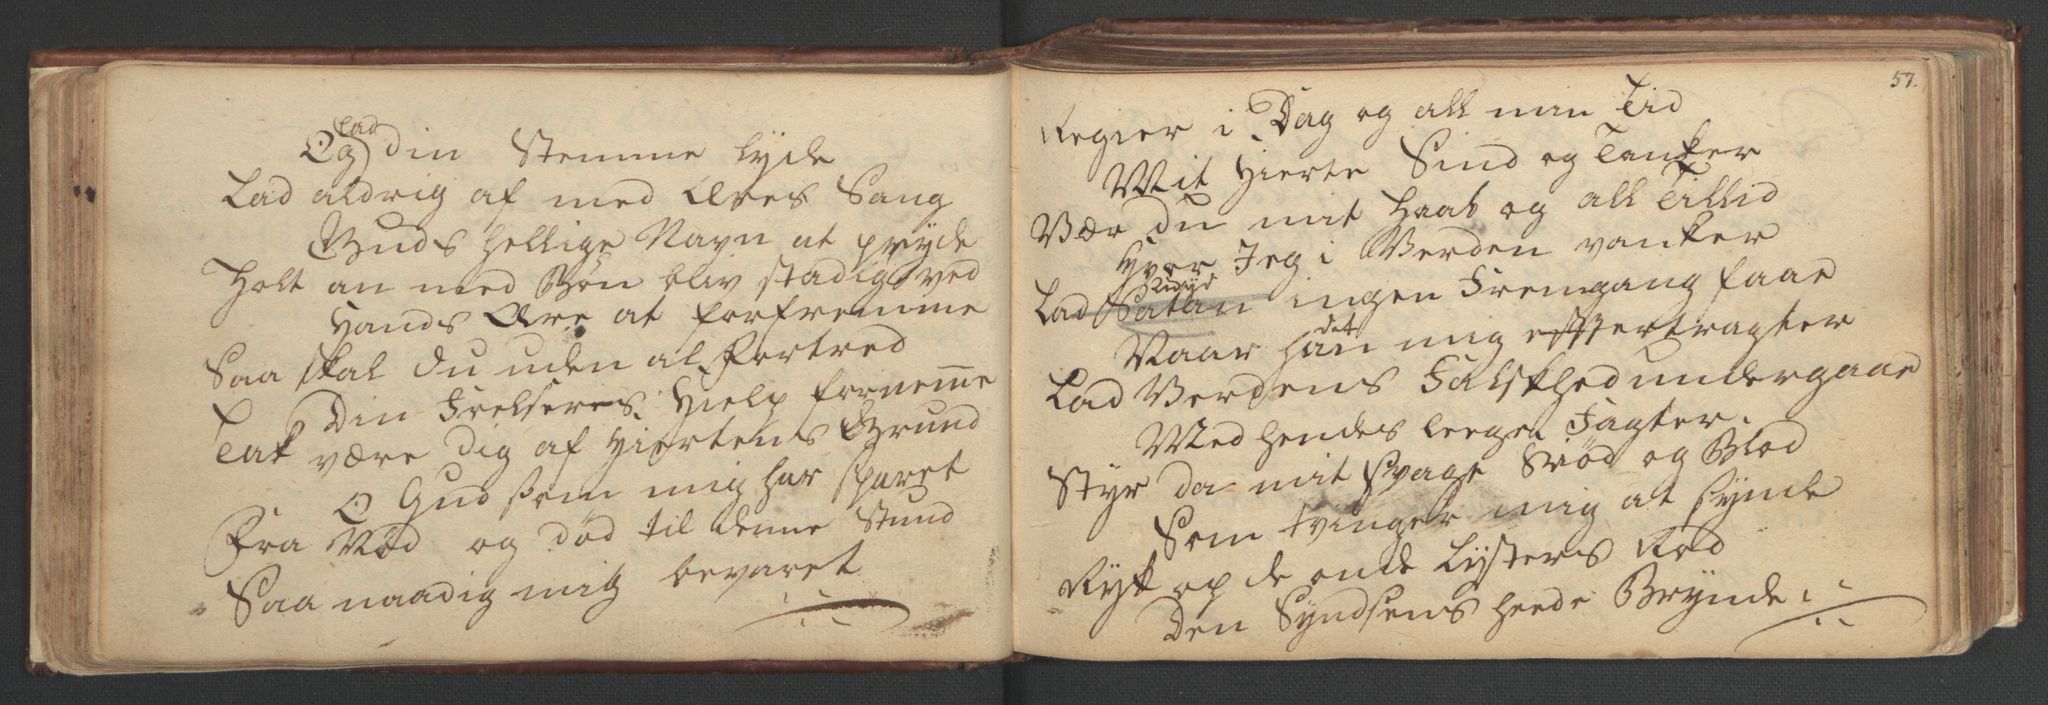 Og lad din Stemme lyde
Lad aldrig af med Æres Sang
Guds hellige Navn at pryde
Holt an med Bøn bliv stadig ved
Hands Ære at forfremme
Saa skal du uden al Fortred
Din Frelseres Hielp fornemme
Tak være dig af Hiertens Grund
O Gud som mig har sparet
Fra Nød og død til denne Stund
Saa naadig mig bevaret
57.
Regier i Dag og all min Tid
Mit Hierte Sind og Tanker
Vær du mit Haab og all Tillid
Hvor Jeg i Verden vanker
Lad Satan ingen Fremgang faae
Naar han det mig efftertragter
Lad Verdens Falskhed undergaae
Med hendes leege Fagter.
Styr da mit svage Kiød og Blod
Som tvinger mig at synde
Ryk op de onde Lysters Rod
Den Syndsens heede Brynde